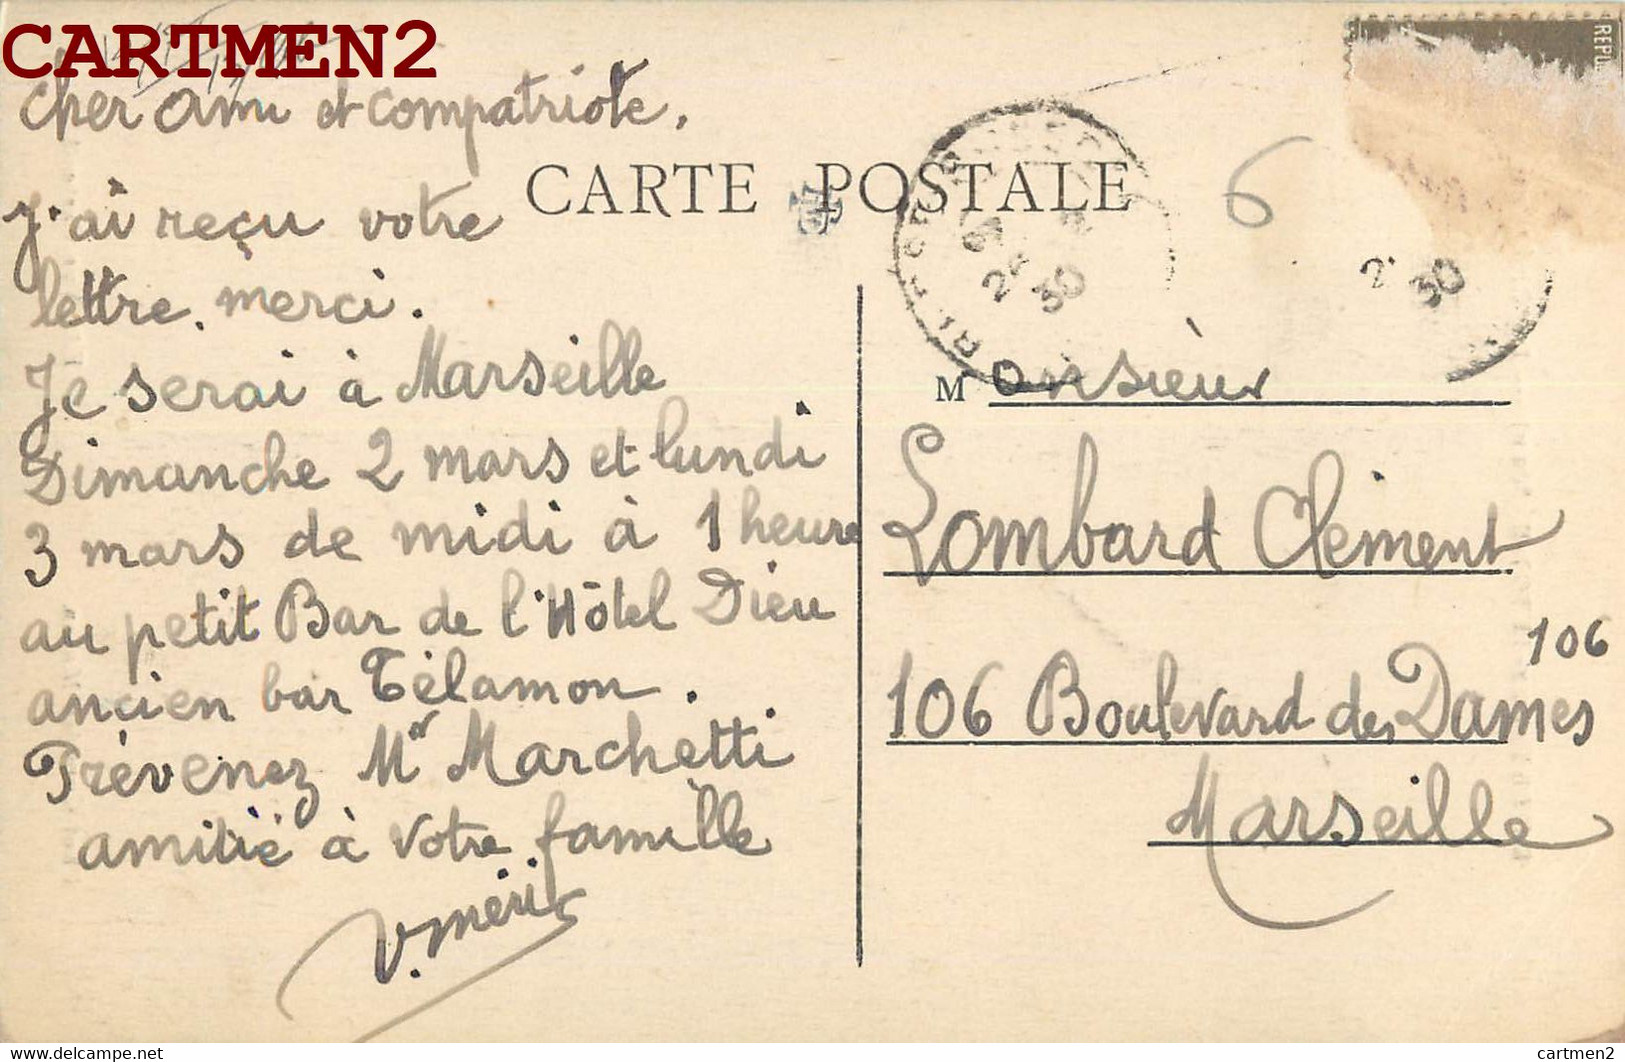 CARTMEN2
Cher ami et compatriote.
J'ai reçu votre
lettre. merci.
Je serai à Marseille
Dimanche 2 mars et lundi
3 mars de midi à 1 heure
au petit Bar de l'Hôtel Dieu
ancien bar Télamon.
Prévenez Mr Marchetti
amitié à votre famille
V. Méric
CARTE POSTALE
6
REPU
30
30
Monsieur
Lombard Clément
106
106 Boulevard des Dames
Marseille
delcampe.net
cartmen2